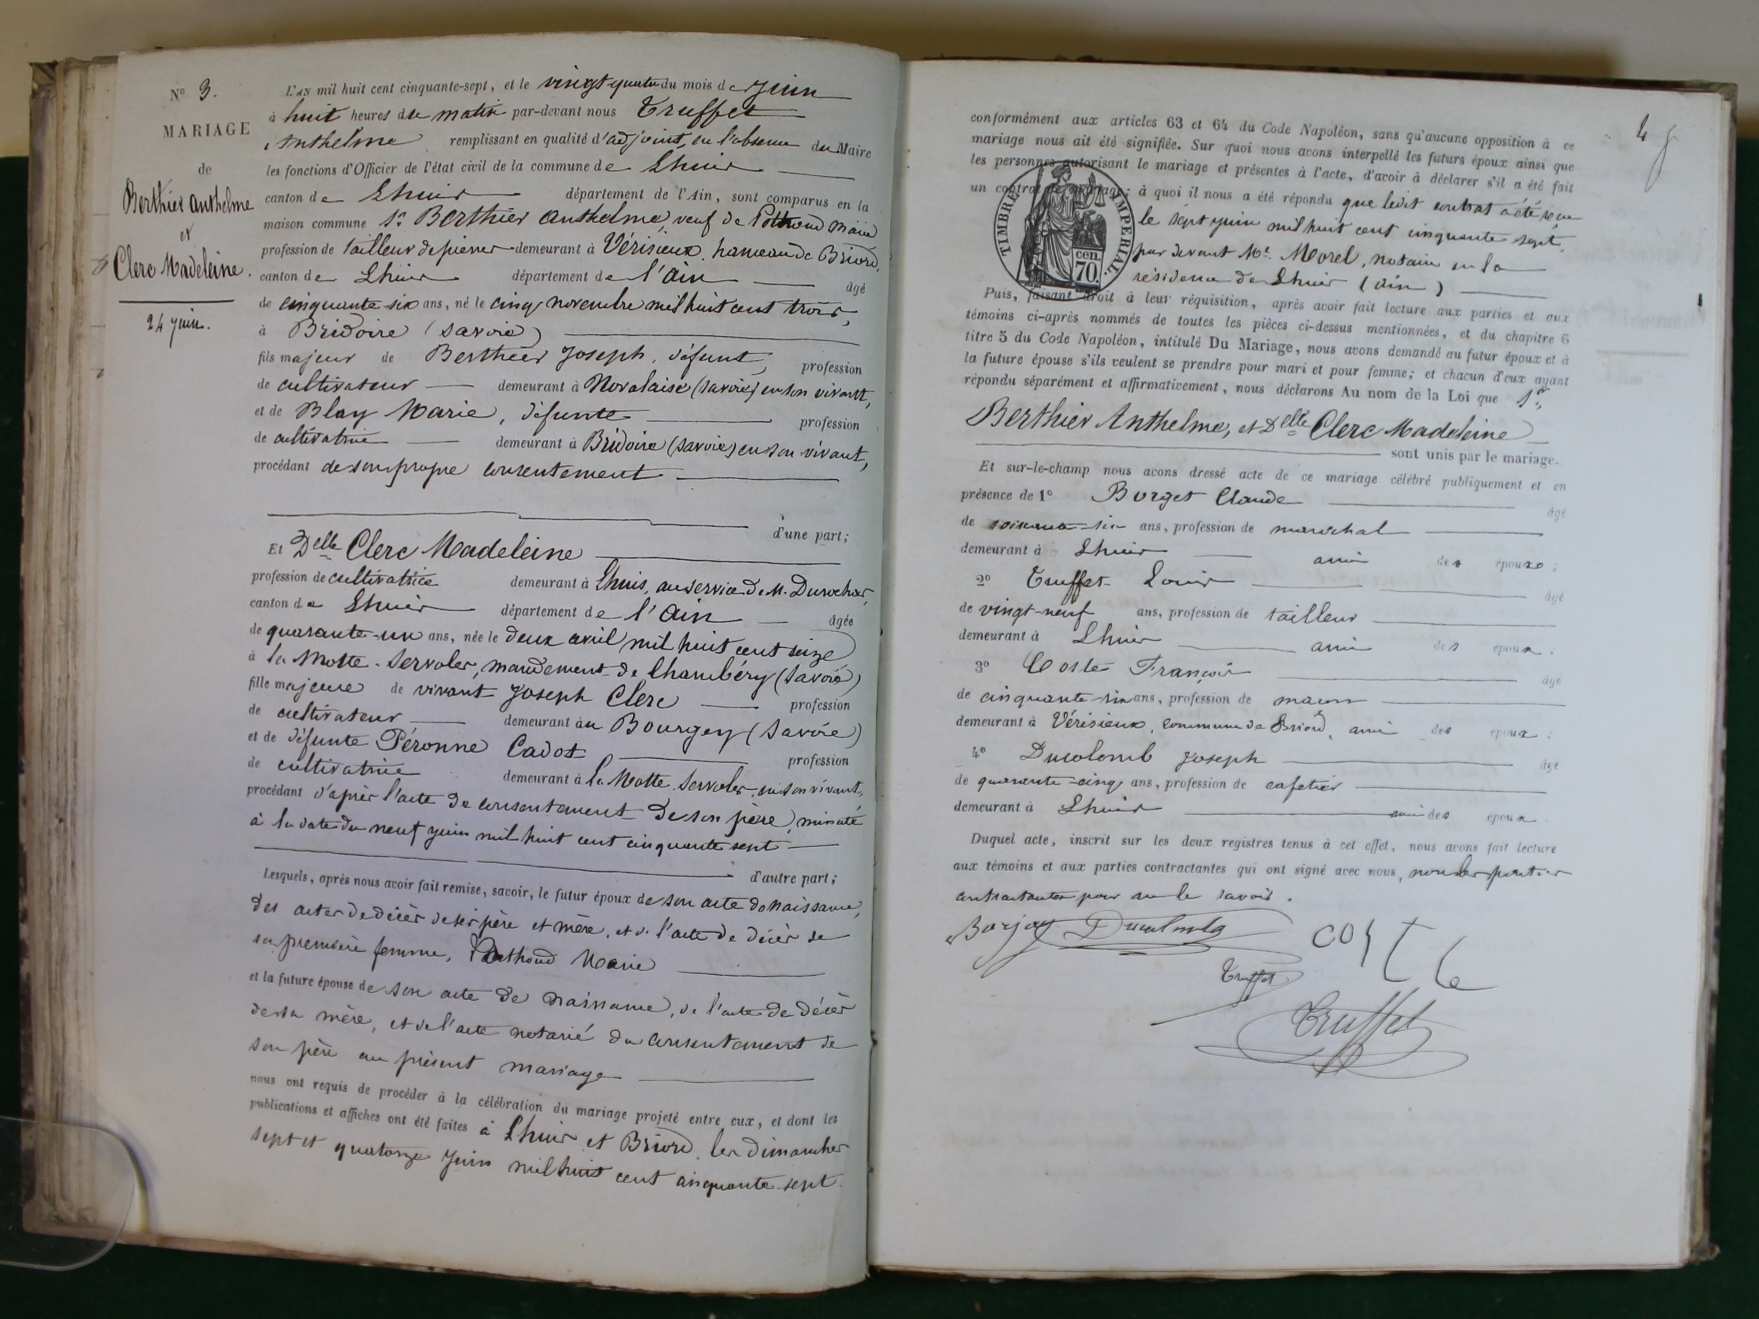 N° 3.
MARIAGE
de
Berthier Anthelme
et
Clerc Madeleine.
24 juin.
L'AN mil huit cent cinquante-sept, et le vingt quatre du mois de juin
à huit heures du matin par-devant nous Truffet
Anthelme remplissant en qualité d'adjoint, en l'absence du Maire
les fonctions d'Officier de l'état civil de la commune de Lhuis
canton de Lhuis département de l'Ain, sont comparus en la
maison commune Sr Berthier Anthelme, veuf de Marie
profession de tailleur de pierres demeurant à Vérisieux, hameau de Briord,
canton de Lhuis département de l'ain âgé
de cinquante six ans, né le cinq novembre mil huit cent trois,
à Bridoire (savoie)
fils majeur de Berthier Joseph, défunt, profession
de cultivateur demeurant à Novalaise (savoie) en son vivant,
et de Blay Marie, défunte profession
de cultivatrice demeurant à Bridoire (savoie) en son vivant,
procédant de son propre consentement
d'une part;
Et Delle Clerc Madeleine
profession de cultivatrice demeurant à Lhuis, au service de M. Durochat,
canton de Lhuis département de l'ain âgée
de quarante-un ans, née le deux avril mil huit cent seize
à la Motte-Servolex, mandement de Chambéry (savoie)
fille majeure de vivant Joseph Clerc profession
de cultivateur demeurant au Bourget (savoie)
et de défunte Péronne Cadot profession
de cultivatrice demeurant à la Motte Servolex, en son vivant,
procédant d'après l'acte de consentement de son père, minuté
à la date du neuf juin mil huit cent cinquante sept
d'autre part;
Lesquels, après nous avoir fait remise, savoir, le futur époux de son acte de naissance,
des actes de décès de ses père et mère, et de l'acte de décès de
sa première femme, Marie
et la future épouse de son acte de naissance, de l'acte de décès
de sa mère, et de l'acte notarié du consentement de
son père au présent mariage
nous ont requis de procéder à la célébration du mariage projeté entre eux, et dont les
publications et affiches ont été faites à Lhuis et Briord, les dimanches
sept et quatorze juin mil huit cent cinquante sept.
4
conformément aux articles 63 et 64 du Code Napoléon, sans qu'aucune opposition à ce
mariage nous ait été signifiée. Sur quoi nous avons interpellé les futurs époux ainsi que
les personnes autorisant le mariage et présentes à l'acte, d'avoir à déclarer s'il a été fait
un contrat de mariage; à quoi il nous a été répondu que ledit contrat a été reçu
le sept juin mil huit cent cinquante sept,
par devant Me. Morel, notaire en la
résidence de Lhuis (ain)
TIMBRE IMPÉRIAL.
70 cen.
Puis, faisant droit à leur réquisition, après avoir fait lecture aux parties et aux
témoins ci-après nommés de toutes les pièces ci-dessus mentionnées, et du chapitre 6
titre 5 du Code Napoléon, intitulé Du Mariage, nous avons demandé au futur époux et à
la future épouse s'ils veulent se prendre pour mari et pour femme; et chacun d'eux ayant
répondu séparément et affirmativement, nous déclarons Au nom de la Loi que Sr.
Berthier Anthelme, et Delle Clerc Madeleine
sont unis par le mariage.
Et sur-le-champ nous avons dressé acte de ce mariage célébré publiquement et en
présence de 1° Borget Claude âgé
de soixante-six ans, profession de marechal
demeurant à Lhuis ami des époux;
2° Truffet Louis âgé
de vingt-neuf ans, profession de tailleur
demeurant à Lhuis ami des époux.
3° Coste François âgé
de cinquante-six ans, profession de maçon
demeurant à Vérisieux, commune de Briord, ami des époux;
4° Ducolomb Joseph âgé
de quarante-cinq ans, profession de cafetier
demeurant à Lhuis ami des époux.
Duquel acte, inscrit sur les deux registres tenus à cet effet, nous avons fait lecture
aux témoins et aux parties contractantes qui ont signé avec nous, non les parties
contractantes pour ne le savoir.
Ducolomb
COSTE
Truffet
Truffet